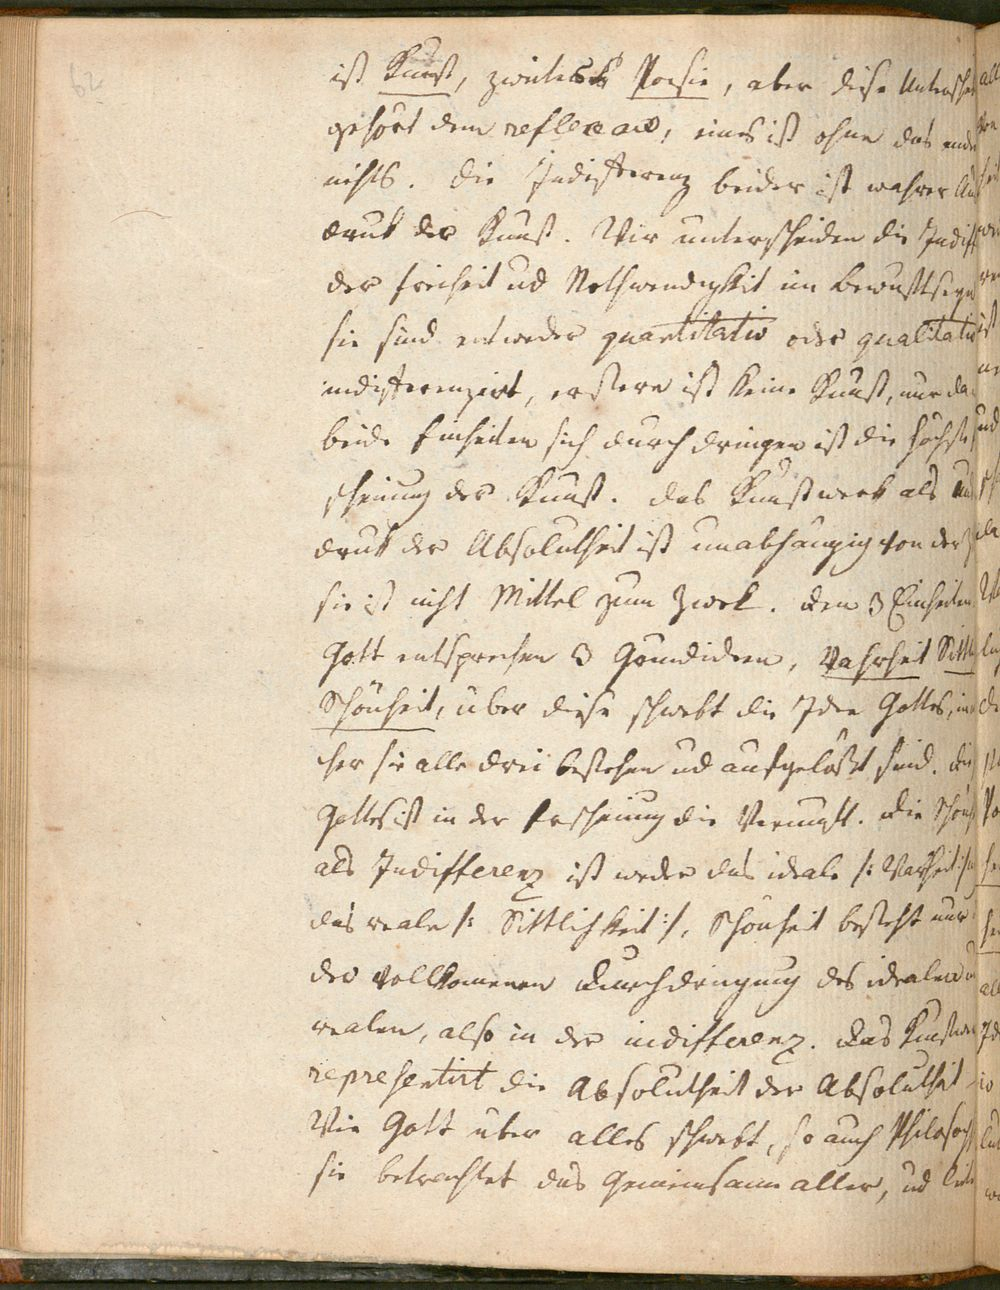 62
ist Kunst, zweites Poesie, aber diese Untersche
gehört dem reflexion, eines ist ohne das ande
nichts. Die Indifferenz beider ist wahrer Au
druk der Kunst. Wir unterscheiden die Indiff
der Freiheit ud Nothwendigkeit im Bewustseyn
sie sind entweder quantitativ oder qualitativ
indifferenzirt, erstere ist keine Kunst, nur da
beide Einheiten sich durchdringen ist die höchste
scheinung der Kunst. Das Kunstwerk als Aus
druk der Absolutheit ist unabhängig von der
sie ist nicht Mittel zum Zwek. Den 3 Einheiten
Gott entsprechen 3 Grundideen, Wahrheit Sittl
Schönheit, über diese schwebt die Idee Gottes, in
cher sie alle drei bestehen ud aufgelößt sind. Die
Gottes ist in der Erscheinung die Vernunft. Die Schönh
als Indifferenz ist weder das ideale /: Warheit :/
das reale /: Sittlichkeit :/, Schönheit besteht nur
der vollkomenen Durchdringung des idealen u
realen, also in der indifferenz. Das Kunstwer
representirt die Absolutheit der Absolutheit
Wie Gott über alles schwebt, so auch Philosoph
sie betrachtet das Gemeinsame aller, ud